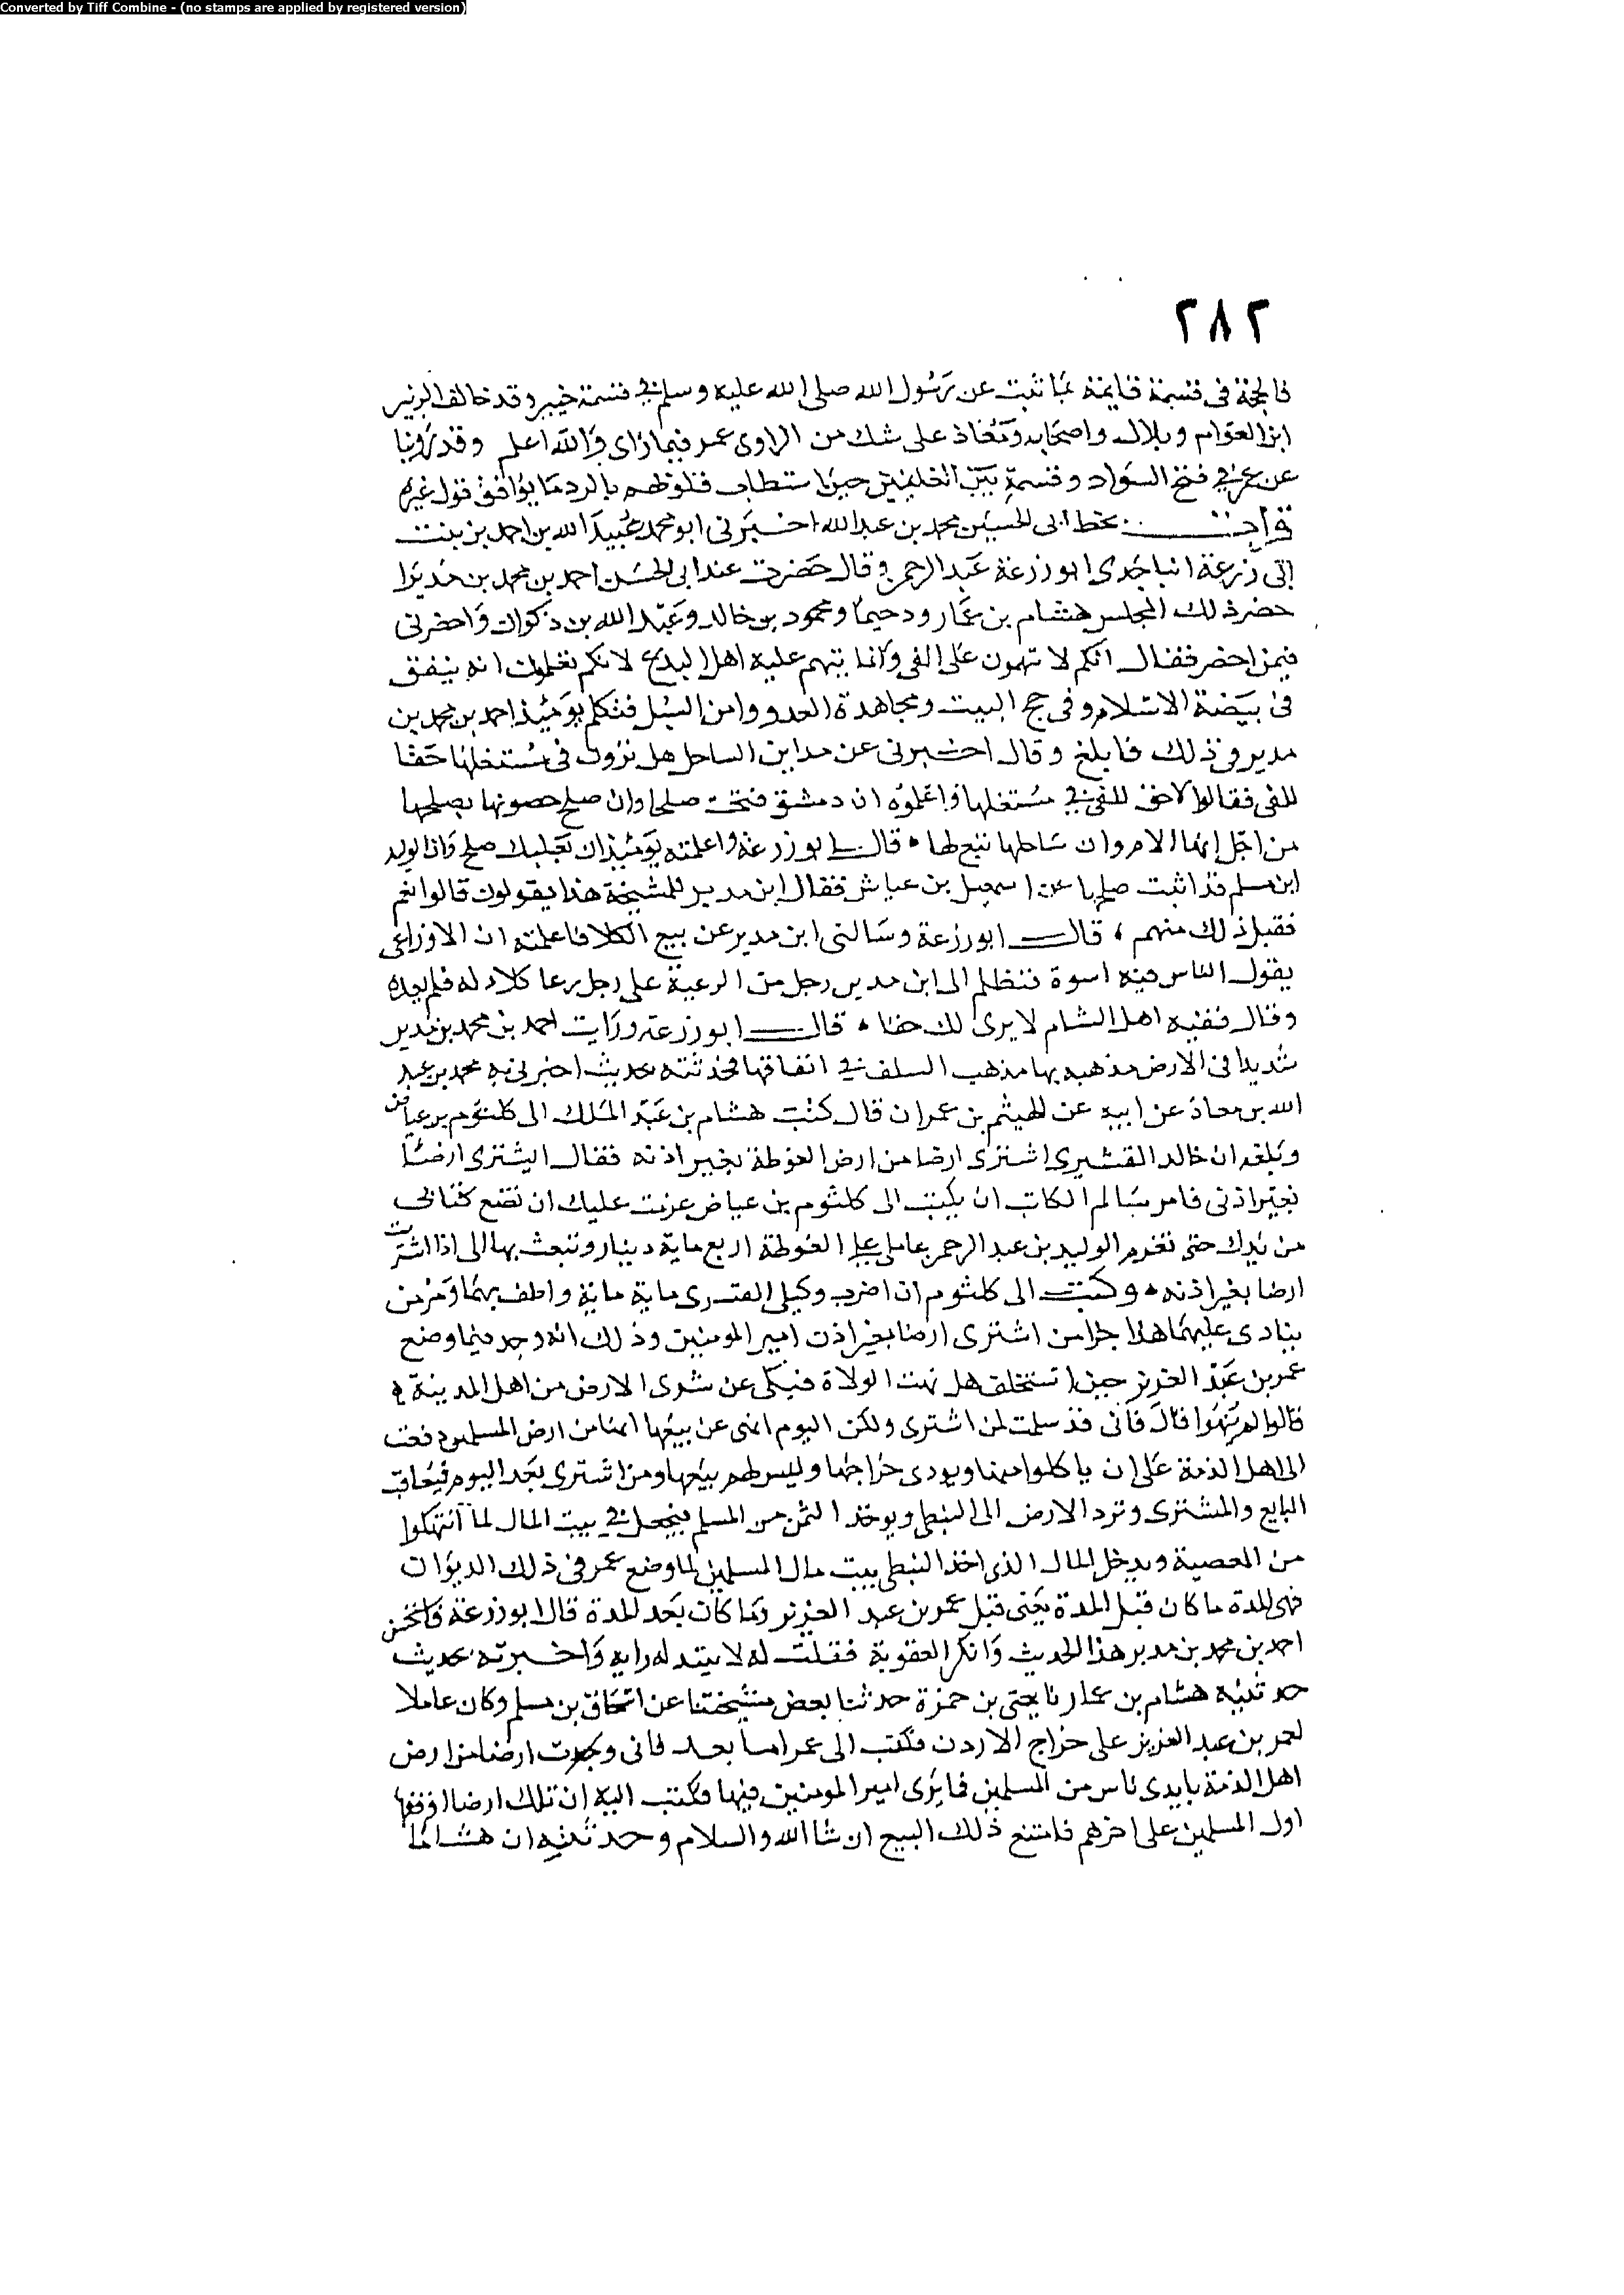 Converted by Tiff Combine - (no stamps are applied by registered version)
٢٨٢
فالحجة فى قسمة قايمة بما ثبت عن رسول الله صلى الله عليه وسلم في قسمة خيبر وقد خالف الزبير
ابن العوام وبلال واصحابه ومعاذ على شك من الراوى عمر فيما راى والله اعلم وقد روينا
عن عمر في فتح السواد وقسمة بين حين استطاب قلوبهم بالرد ما يوافق قول غيره
قرات بخط ابى الحسين محمد بن عبد الله اخبرنى ابو محمد عبيد الله بن احمد بن بنت
ابى زرعة انبا جدى ابو زرعة عبد الرحمن وقال حضرت عند ابى الحسن احمد بن محمد بن مدبر
حضر ذلك المجلس هشام بن عمار ودحيما ومحمود بن خالد وعبد الله بن ذكوان واحضرنى
فيمن احضر فقال انكم لا تتهمون على الفى وانما يتهم عليه اهل البدع لانكم تعلمون انه ينفق
فى بيضة الاسلام وفى حج البيت ومجاهدة العدو وامن السبل فتكلم يومئذ احمد بن محمد بن
مدبر فى ذلك فابلغ وقال اخبرنى عن مداين الساحل هل ترون فى مستغلها حقا
للفى فقالوا لا حق للفى في مستغلها واعلموه ان دمشق فتحت صلحا وان صلح حصونها بصلحها
من اجل انها الام وان ساحلها تبع لها • قال ابو زرعة واعلمته يومئذ ان بعلبك صلح وان الوليد
ابن مسلم قد اثبت صلحها عن اسمعيل بن عياش فقال ابن مدبر للمشيخة هذا يقولون قالوا نعم
فقبل ذلك منهم ، قال ابو زرعة وسالنى ابن مدبر عن بيع الكلا فاعلمته ان الاوزاعى
يقول الناس فيه اسوة فتظلم الى ابن مدبر رجل من الرعية على رجل رعا كلاء له فلم يعده
وقال فقيه اهل الشام لا يرى لك حقا • قال ابو زرعة ورايت احمد بن محمد بن مدبر
شديدا فى الارض مذهبه بها مذهب السلف في فحدثته بحديث اخبرنى به محمد بن عبد
الله بن معاذ عن ابيه عن الهيثم بن عمران قال كتب هشام بن عبد الملك الى كلثوم بن عياض
وبلغه ان خالد القشيرى اشترى ارضا من ارض الغوطة بغير اذنه فقال ايشترى ارضا
بغير اذنى فامر سالم الكاتب ان يكتب الى كلثوم بن عياض عزمت عليك ان تضع كتابى
من يدك حتى تغرم الوليد بن عبد الرحمن عاملى على الغوطة اربع ماية دينار وتبعث بها الى اذا اشتريت
ارضا بغير اذنه • وكتب الى كلثوم ان اضرب وكيلى القسرى ماية ماية واطف بهما ومر من
ينادى عليهما هذا جزا من اشترى ارضا بغير اذن امير المومنين وذلك انه وجد فيما وضع
عمر بن عبد العزيز حين استخلف هل نهت الولاة قبلى عن شرى الارض من اهل المدينة
قالوا لم ينهوا قال فانى قد سلمت لمن اشترى ولكن اليوم انهى عن بيعها انها من ارض المسلمين دفعت
الى اهل الذمة على ان ياكلوا منها ويودى خراجها وليس لهم بيعها ومن اشترى بعد اليوم فيعاقب
البايع والمشترى وترد الارض الى النبطى ويوخذ الثمن من المسلم فيجعل في بيت المال لما انتهكوا
من المعصية ويدخل المال الذى اخذ النبطى بيت مال المسلمين لما وضع عمر فى ذلك الديوان
فهى المدة ما كان قبل المدة يعنى قبل عمر بن عبد العزيز وما كان بعد المدة قال ابو زرعة
احمد بن محمد بن مدبر هذا الحديث وانكر العقوبة فقلت له رايه واخبرته بحديث
حدثنيه هشام بن عمار نا يحيى بن حمزة حدثنا بعض مشيختنا عن اسحاق بن مسلم وكان عاملا
لعمر بن عبد العزيز على خراج الاردن فكتب الى عمر اما بعد فانى وجدت ارضا من ارض
اهل الذمة بايدى ناس من المسلمين فما يرى امير المومنين فيها فكتب اليه ان تلك ارضا اوقفها
اول المسلمين على اخرهم فامنع ذلك البيع ان شا الله والسلام وحدثنيه ان هشاما